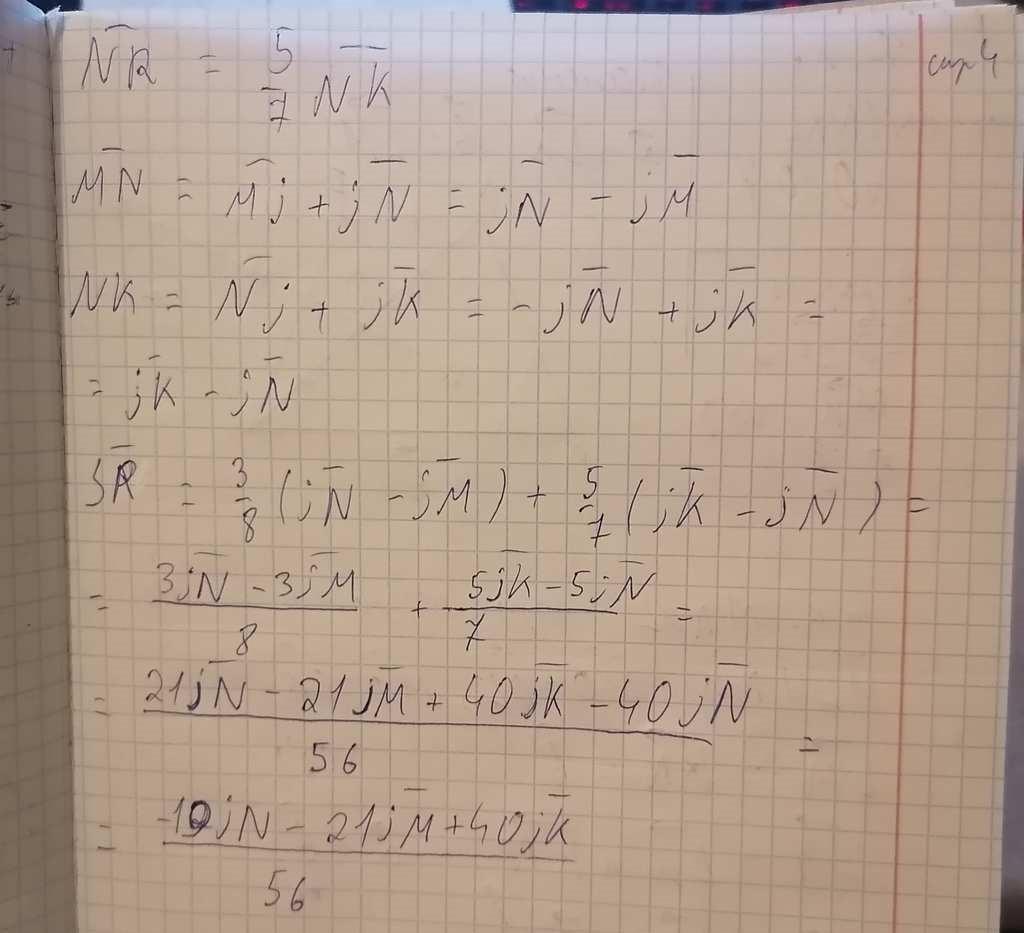 стр 4
N̅R̅ = 5/7 N̅K̅
M̅N̅ = M̅j̅ + j̅N̅ = j̅N̅ - j̅M̅
NK = N̅j̅ + j̅K̅ = -j̅N̅ + j̅K̅ =
= j̅K̅ - j̅N̅
S̅R̅ = 3/8 (j̅N̅ - j̅M̅) + 5/7 (j̅K̅ - j̅N̅) =
= (3j̅N̅ - 3j̅M̅)/8 + (5j̅K̅ - 5j̅N̅)/7 =
= (21j̅N̅ - 21j̅M̅ + 40j̅K̅ - 40j̅N̅)/56 =
= (-19jN - 21j̅M̅ + 40j̅K̅)/56